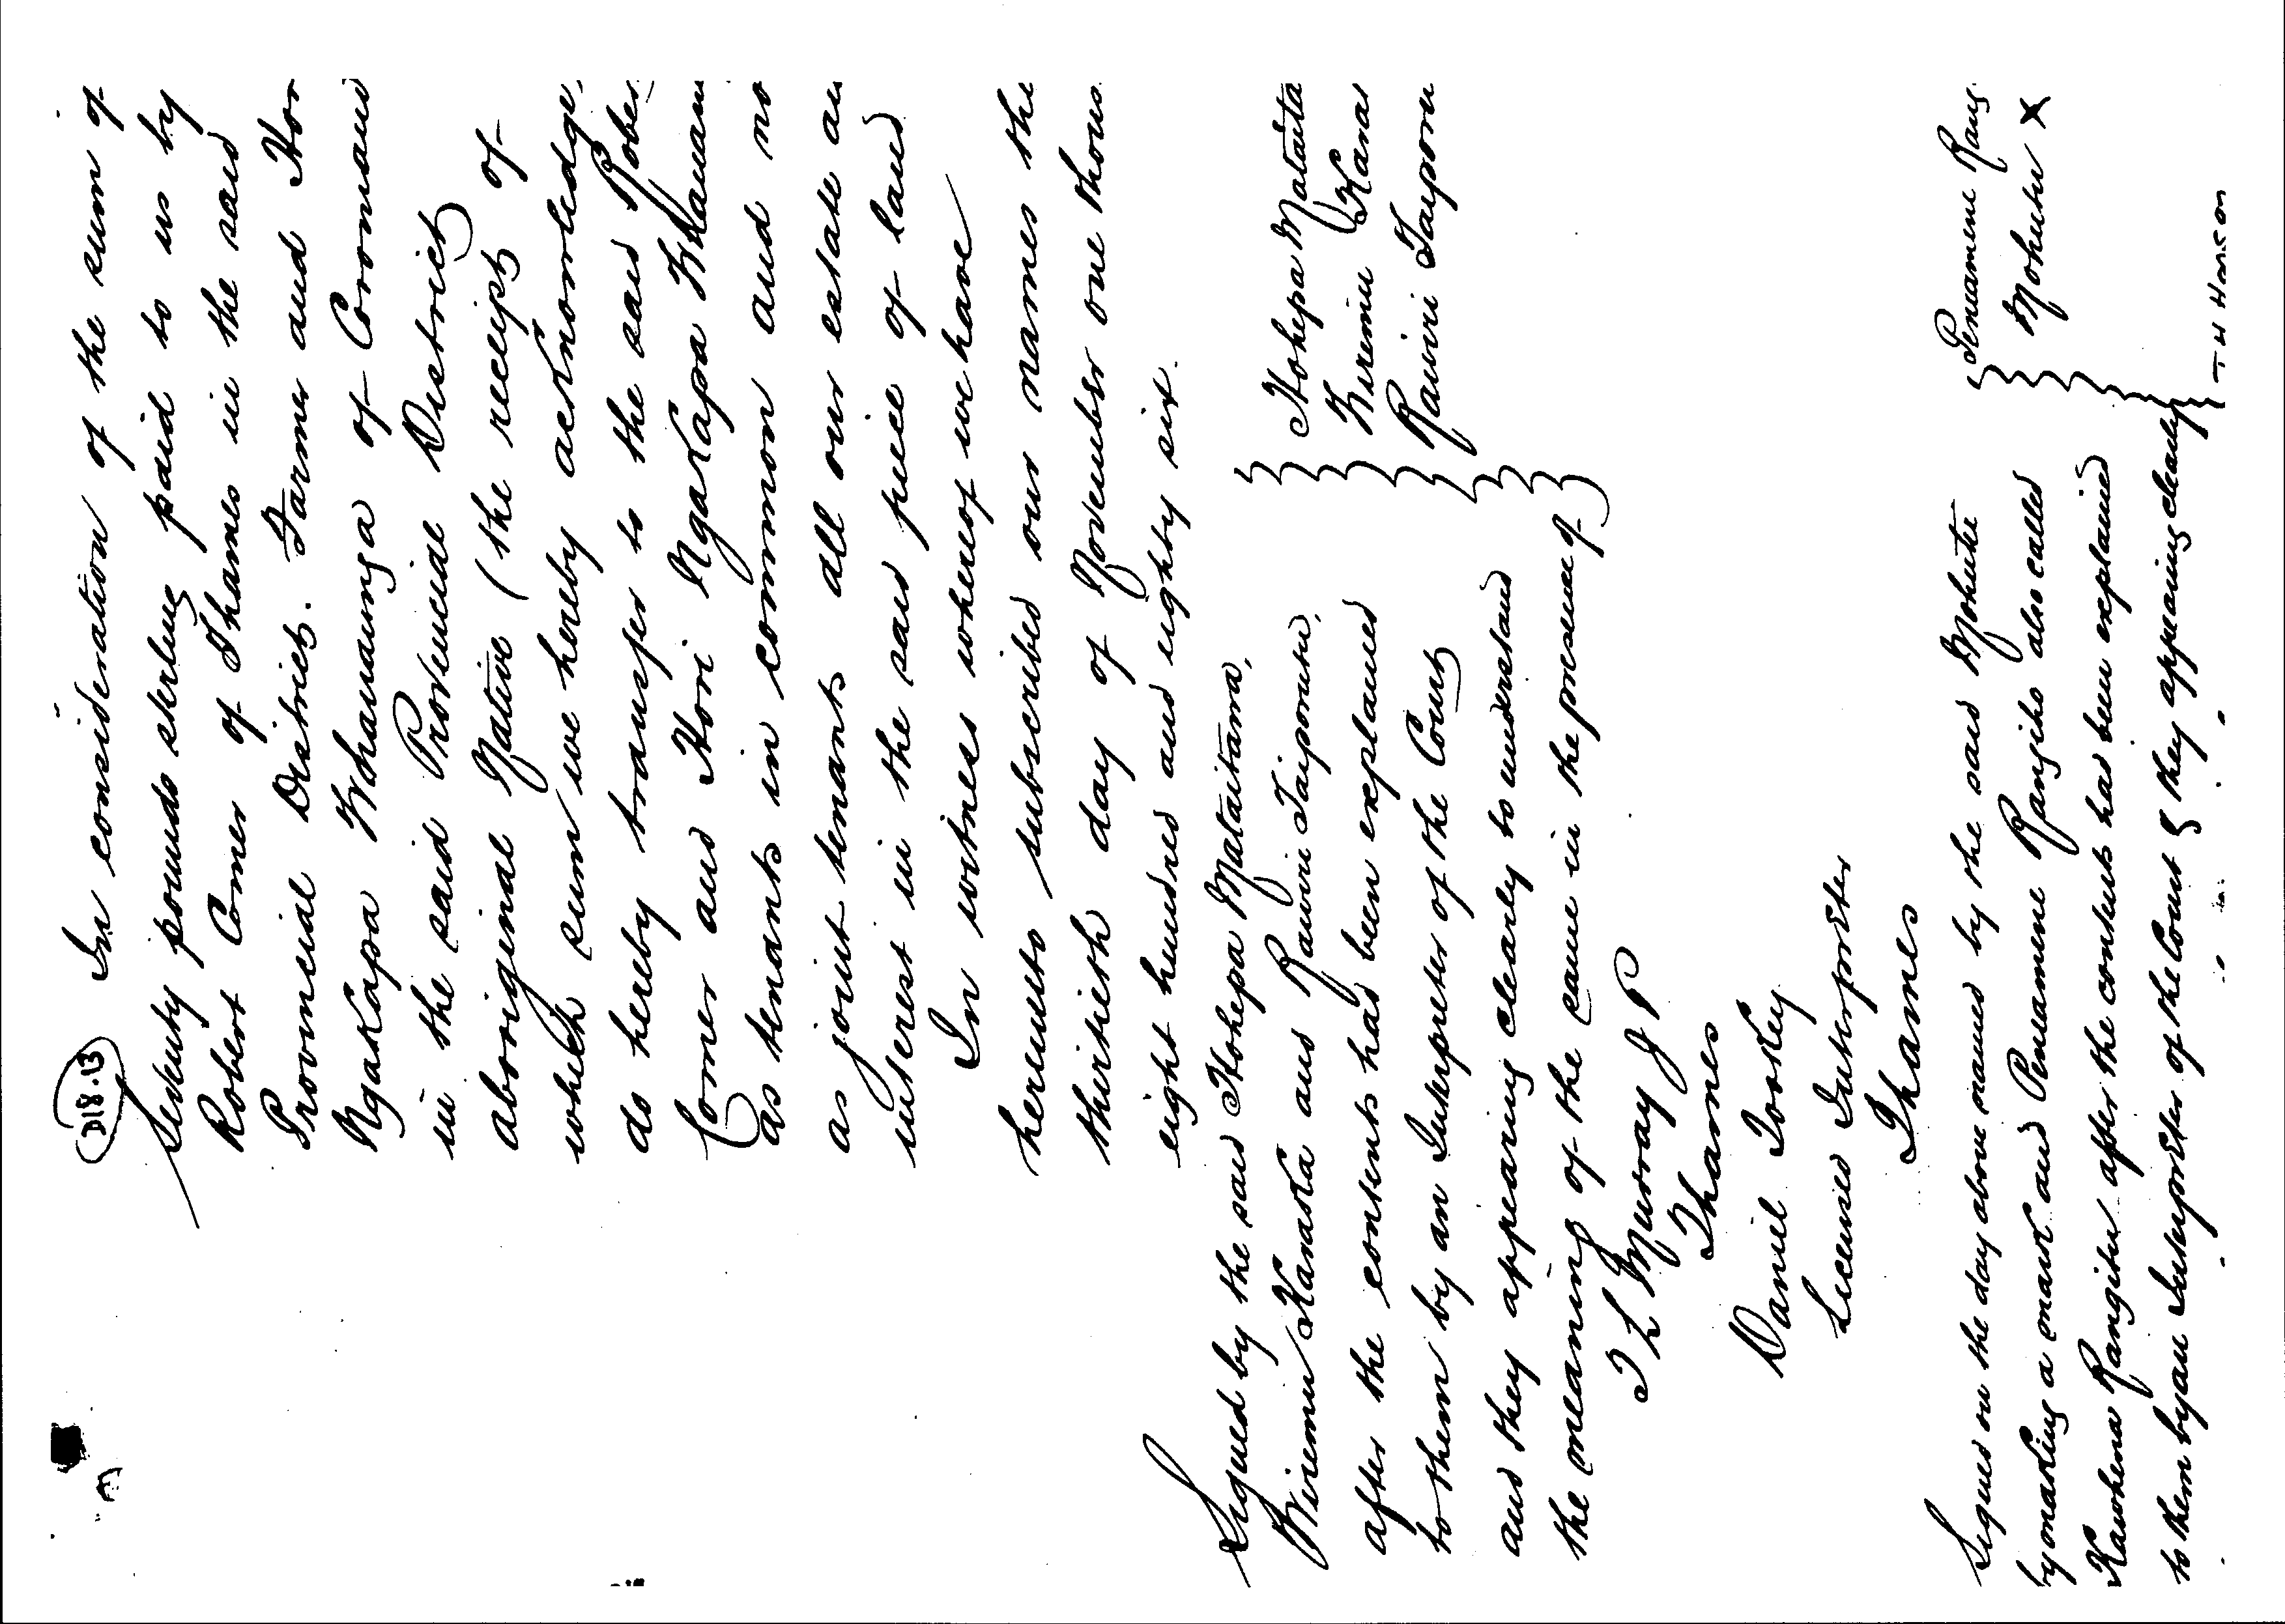 318.13
In consideration of the sum of
Seventy pounds sterling paid to us by
Robert Comer of Thames in the said
Provincial District. Farmer and Hor
Ngakapa Whanaunga of Coromand
in the said Provincial District
aboriginal Native (the receipt of
which sum we hereby acknowledge,
do hereby transfer to the said Rober
Comer and Hori Ngakapa Whanaun
as tenants in common and no
as joint tenants all our estate an
interest in the said piece of land
In witness whereof we have
hereunto subscribed our names the
thirtieth day of November one thous
eight hundred and eighty six.
Signed by the said Hohepa Mataitama,
Wiremu Karaka and Rawiri Taiporutu,
after the contents had been explained
to them by an Interpreter of the Court
and they appearing clearly to understand
the meaning of the same in the presence of
Hohepa Mataita
Wiremu Karak
Rawiri Taiporu
T L Murray J P
Thames
Daniel Tookey
Licensed Interpreter
Thames
Signed on the day above named by the said Mohutu
by making a mark and Penamene Rangiho also called
Rangitu after the contents had been explained
to them by an Interpreter of the Court & they appearing clearly
Penamene Rang
Mohutu X